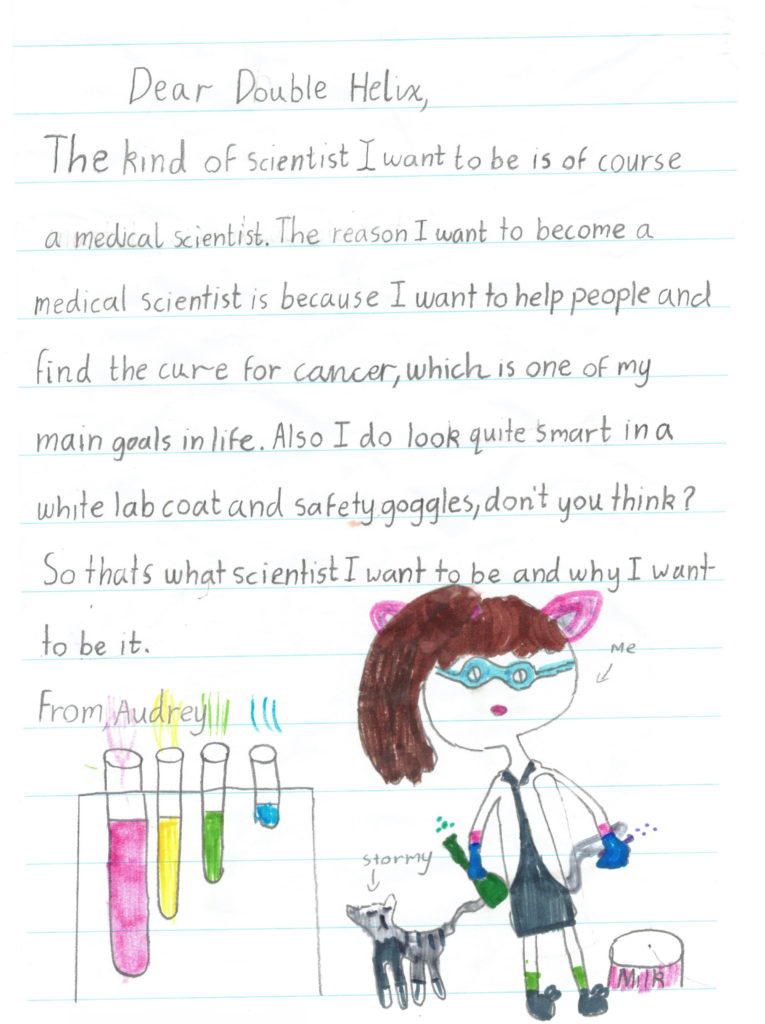 Dear Double Helix,
The kind of scientist I want to be is of course
a medical scientist. The reason I want to become a
medical scientist is because I want to help people and
find the cure for cancer, which is one of my
main goals in life. Also I do look quite smart in a
white lab coat and safety goggles, don't you think?
So thats what scientist I want to be and why I want
to be it.
Me
From, Audrey
Stormy
Milk